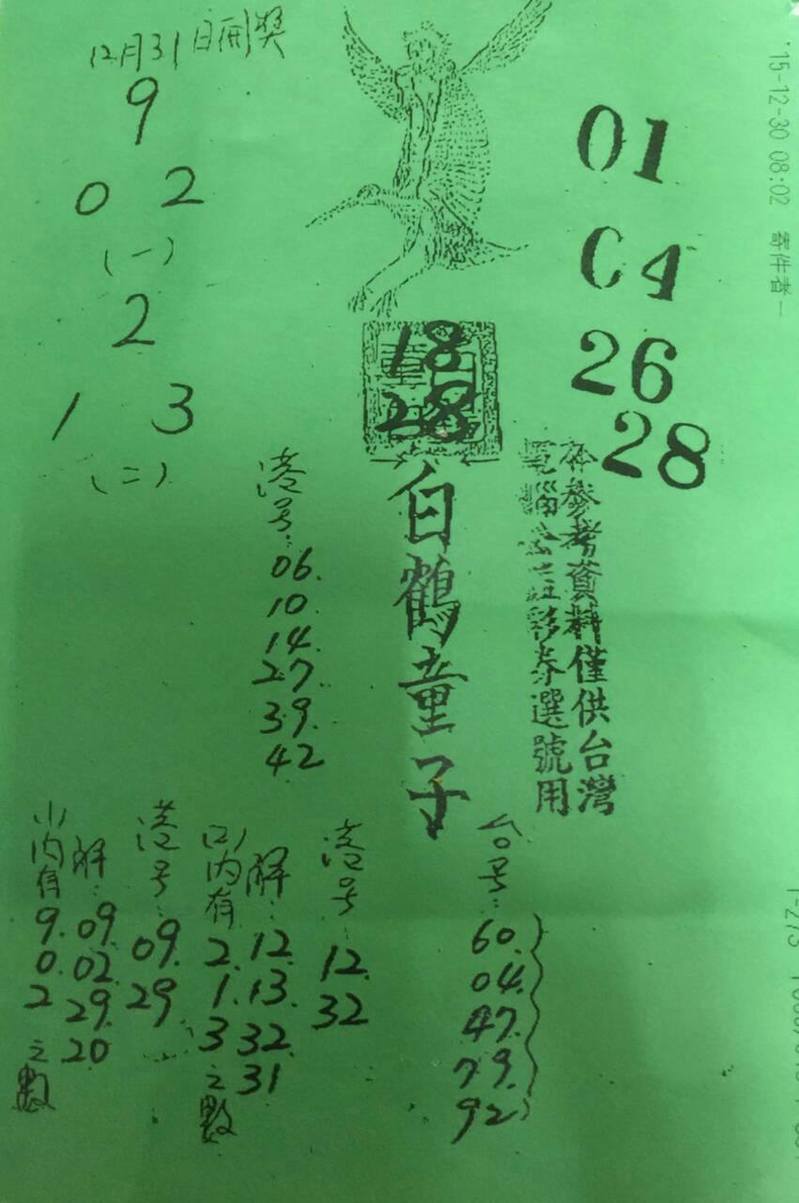 12月31日開獎
9
0 2
(一)
2
1 3
(二)
01
04
26
28
'15-12-30 08:02 寄件者-
18
28
白鶴童子
本參考資料僅供台灣
電腦公益彩券選號用
港号:
06.
10.
14.
27.
39.
42
(一)内有
9.
0.
2
之數
解:
09.
02.
29.
20
港号:
09.
29
(二)内有
2.
1.
3
之數
解:
12.
13.
32.
31
港号:
12.
32
台号:
60.
04.
47.
79.
92